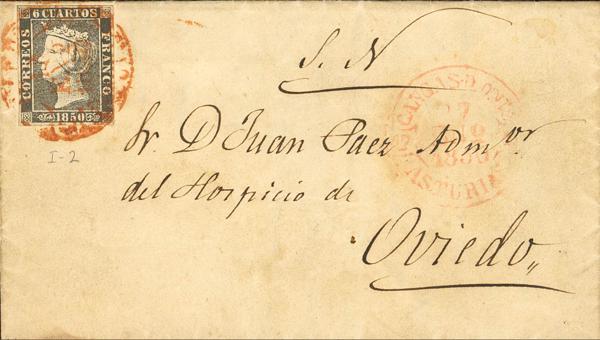 6 CUARTOS
CORREOS
FRANCO
1850
S. N
I-2
Sr. D Juan Paez Adm.or
del Hospicio de
Oviedo
CANGAS-D-ONIS
1850
ASTURIAS